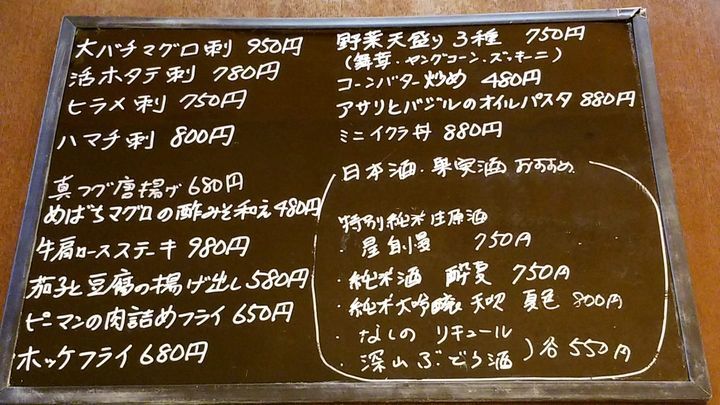 大バチマグロ刺 950円
活ホタテ刺 780円
ヒラメ刺 750円
ハマチ刺 800円
真つぶ唐揚げ 680円
めばちマグロの酢みそ和え 480円
牛肩ロースステーキ 980円
茄子と豆腐の揚げ出し 580円
ピーマンの肉詰めフライ 650円
ホッケフライ 680円
野菜天盛り 3種 750円
(舞茸・ヤングコーン・ズッキーニ)
コーンバター炒め 480円
アサリとバジルのオイルパスタ 880円
ミニイクラ丼 880円
日本酒・果実酒 おすすめ
特別純米生原酒
・星自慢 750円
・純米酒 酔夏 750円
・純米大吟醸 天吹 夏色 800円
・なしの リキュール
・深山ぶどう酒 )各550円